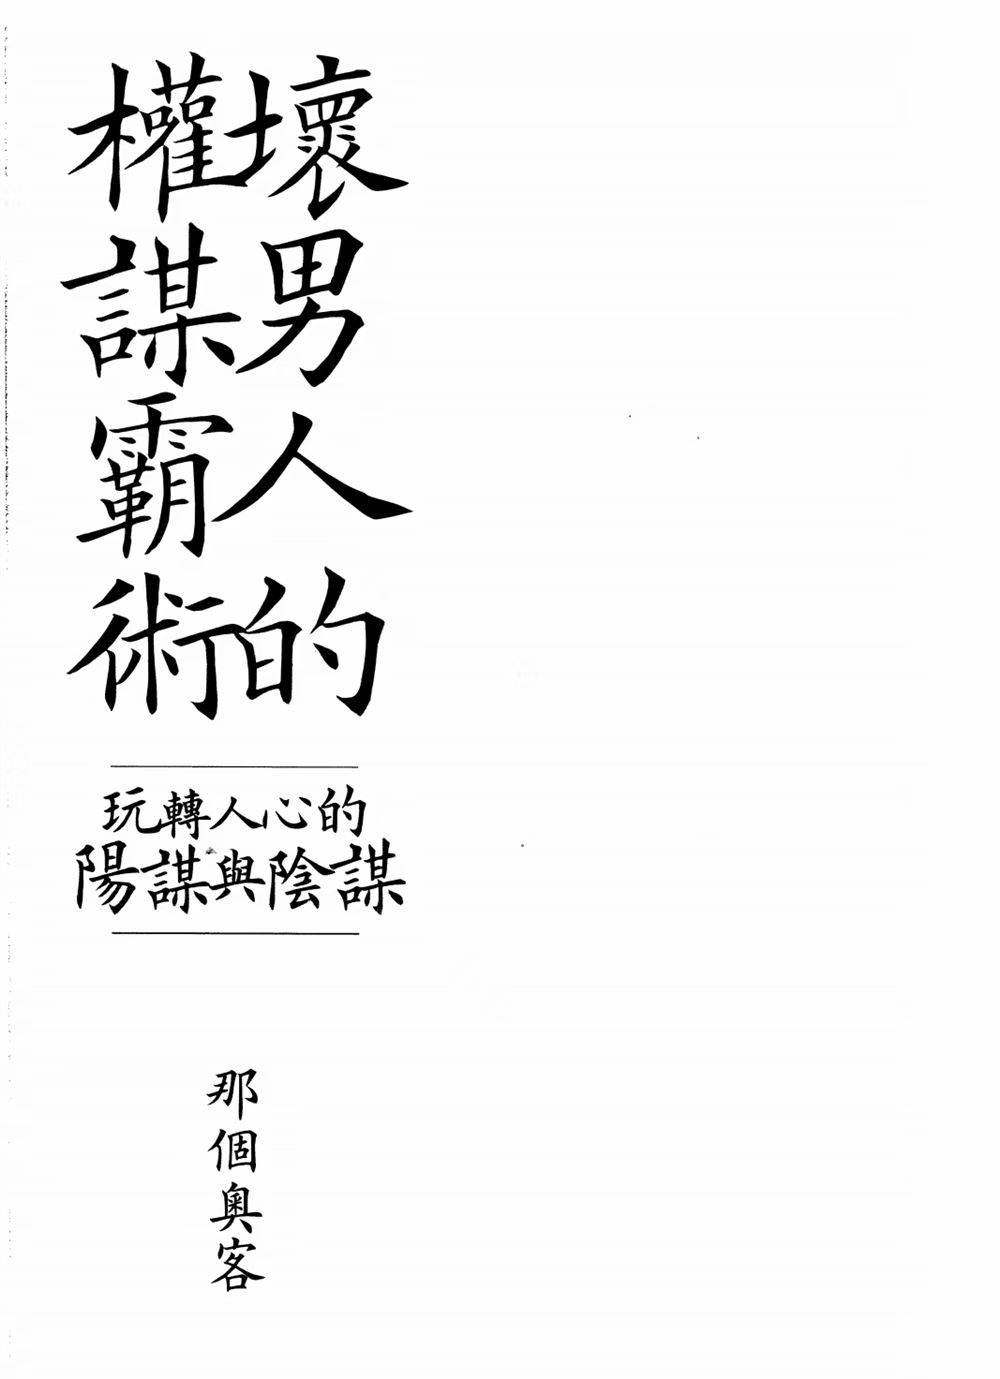 壞男人的
權謀霸術
玩轉人心的
陽謀與陰謀
那個奧客